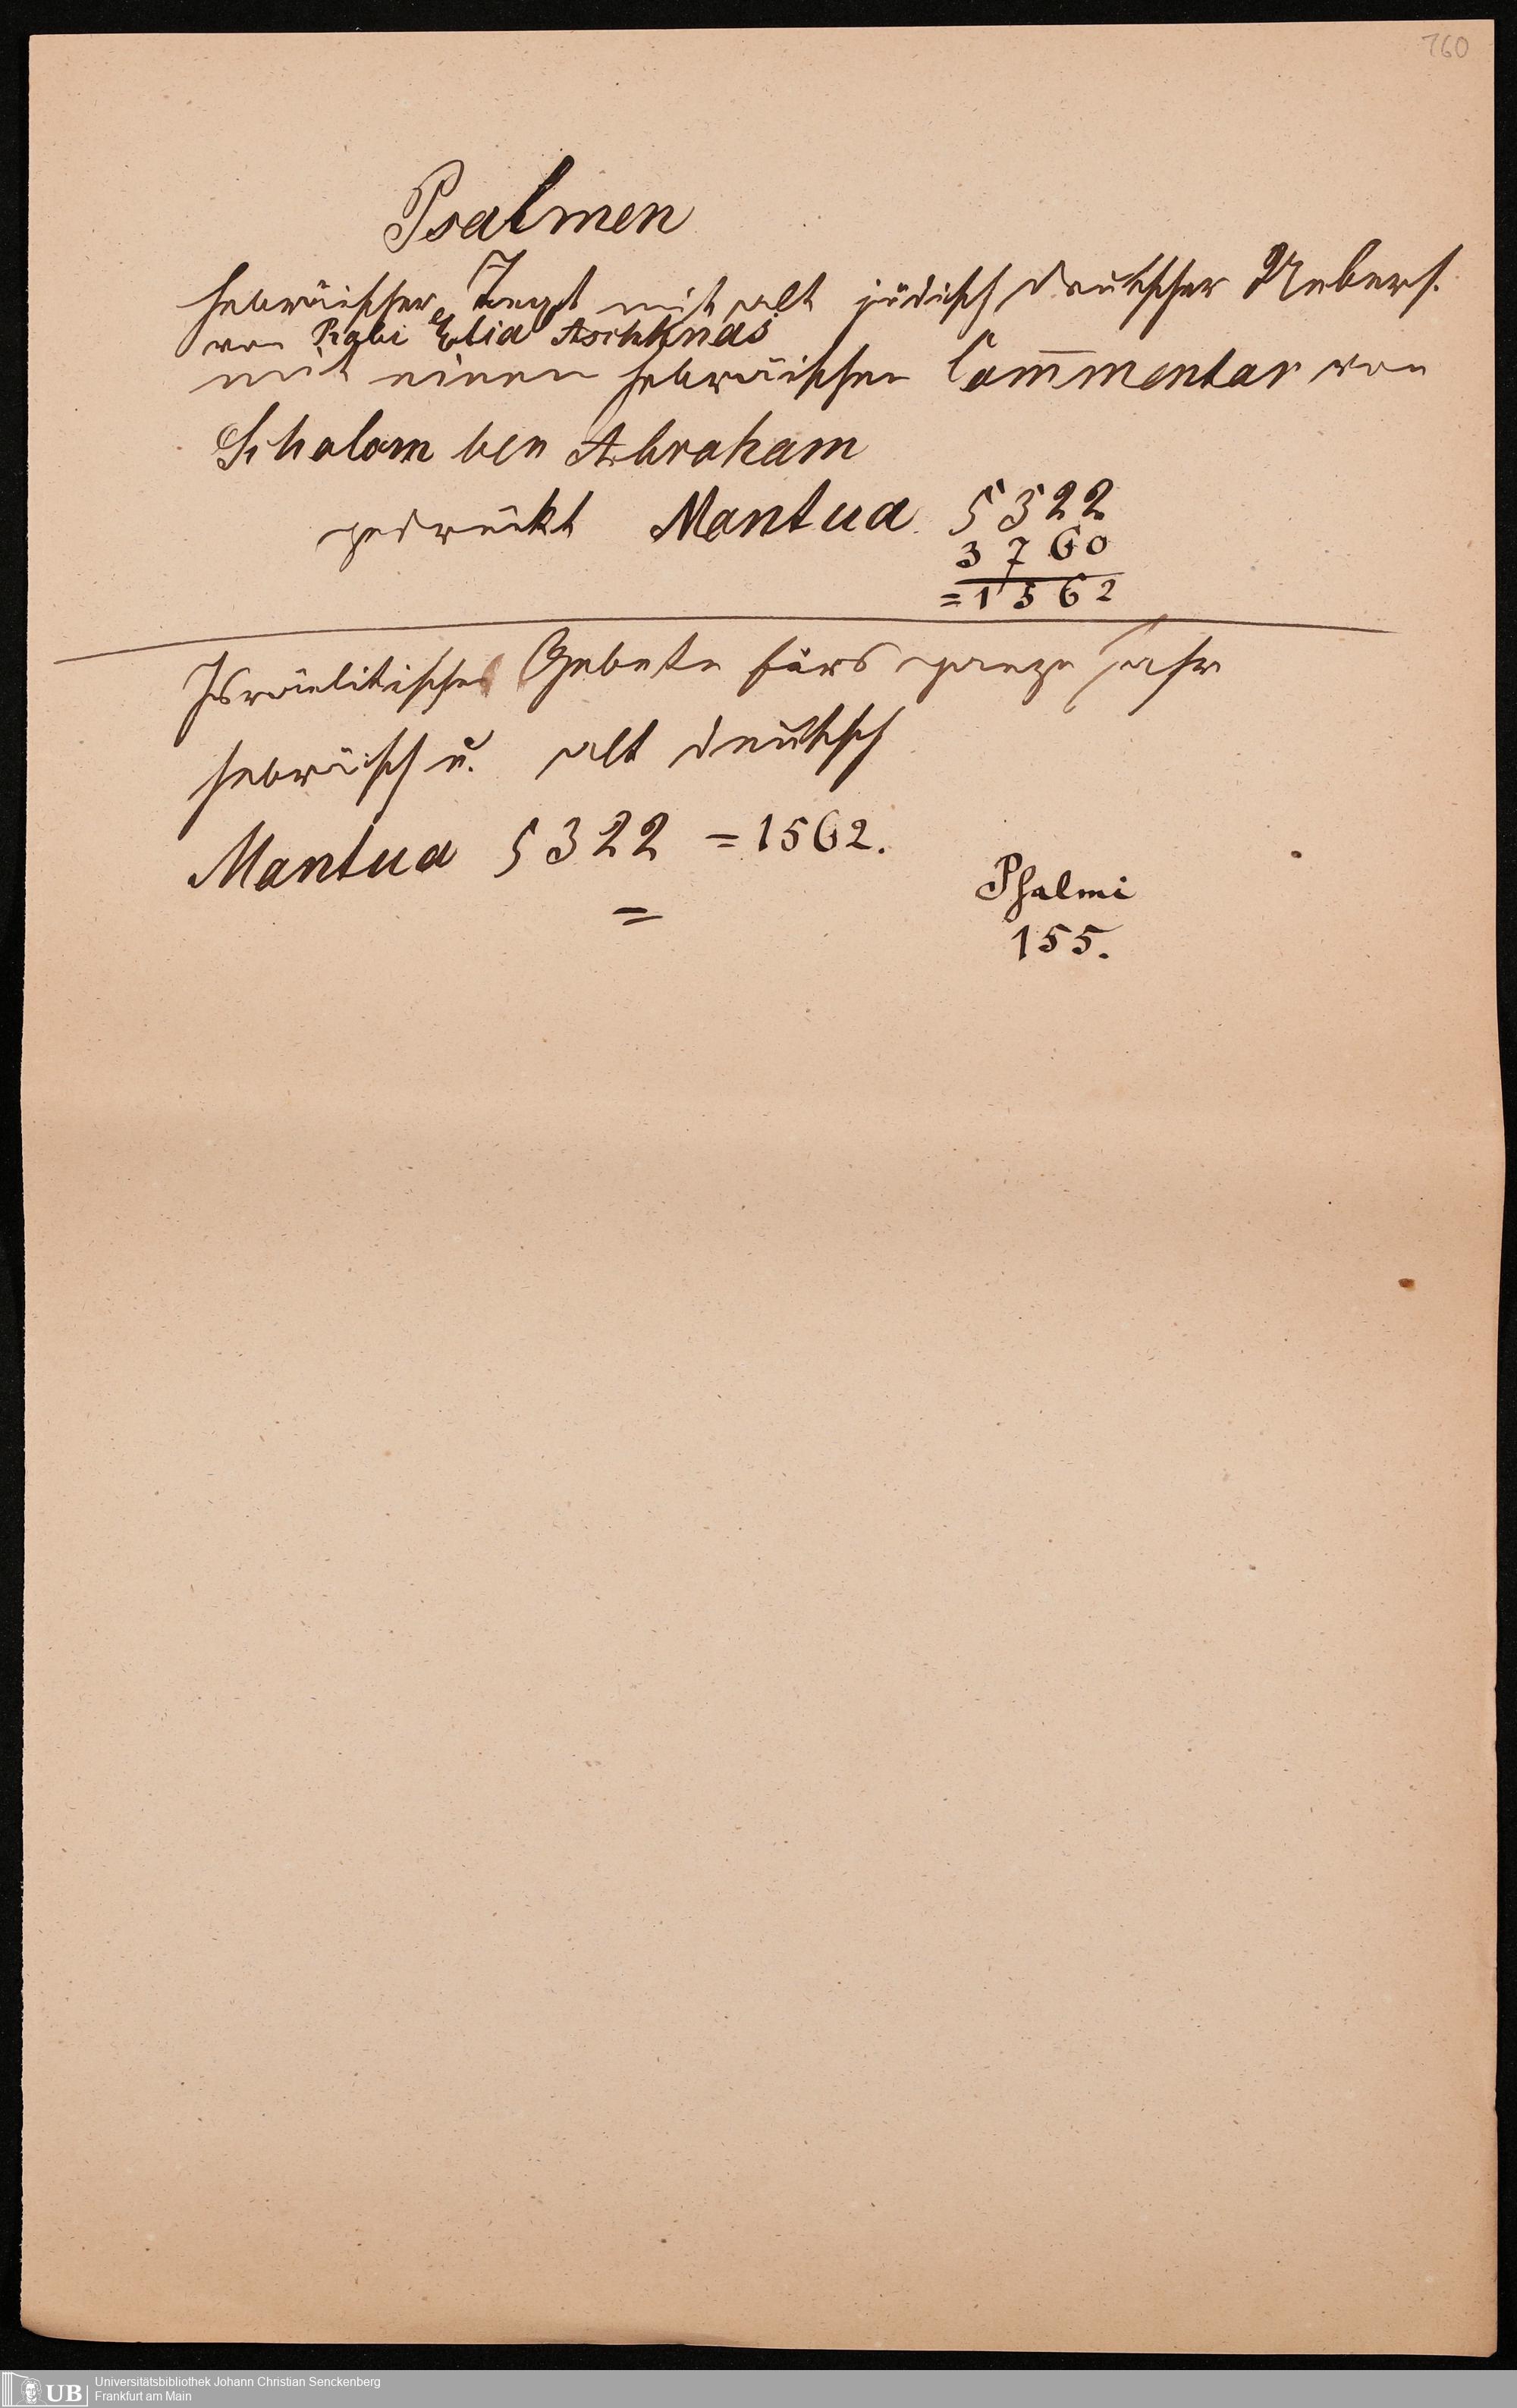 760
Psalmen
hebräischer Text mit alt jüdisch deutscher Uebers.
von Rabi Elia Aschknas
mit einen hebräischen Com̅mentar von
Schalom ben Abraham
gedruckt Mantua 5322
3760
=1562
Israelitisches Gebete fürs ganze Jahr
hebräisch u. alt deutsch
Mantua 5322 = 1562.
=
Psalmi
155.
UB Universitätsbibliothek Johann Christian Senckenberg
Frankfurt am Main